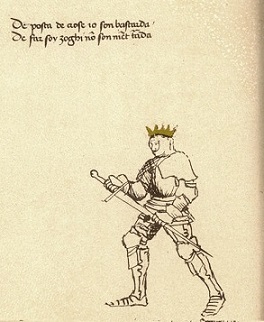 De posta de crose io son bastarda
De far soy zoghi nō son may tarda